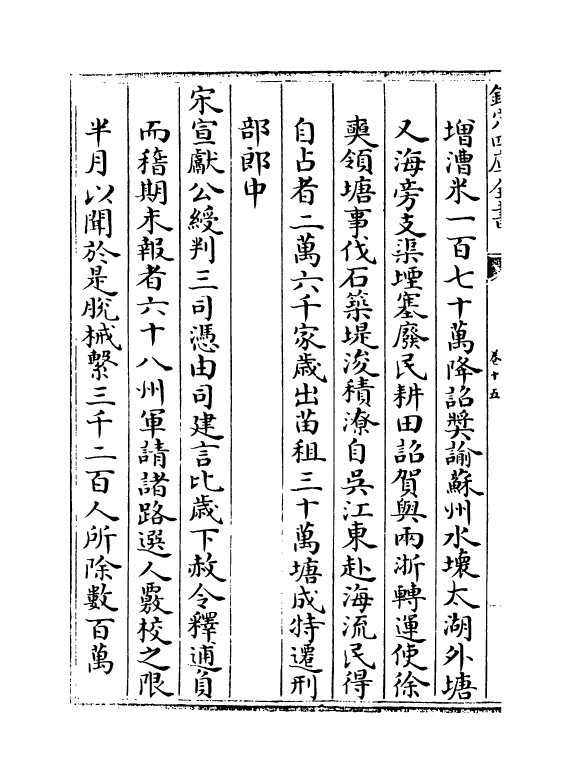 欽定四庫全書
卷十五
增漕米一百七十萬降詔奬諭蘇州水壞太湖外塘
又海旁支渠堙塞廢民耕田詔賀與兩浙轉運使徐
奭領塘事伐石築堤浚積潦自吳江東赴海流民得
自占者二萬六千家歲出苗租三十萬塘成特遷刑
部郎中
宋宣獻公綬判三司憑由司建言比歲下赦令釋逋負
而稽期未報者六十八州軍請諸路選人覈校之限
半月以聞於是脫械繫三千二百人所除數百萬